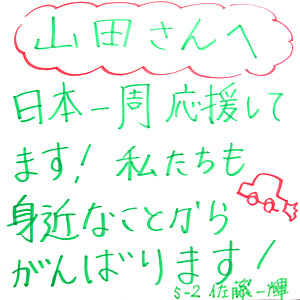 山田さんへ
日本一周応援して
ます! 私たちも
身近なことから
がんばります!
5-2 佐藤一輝